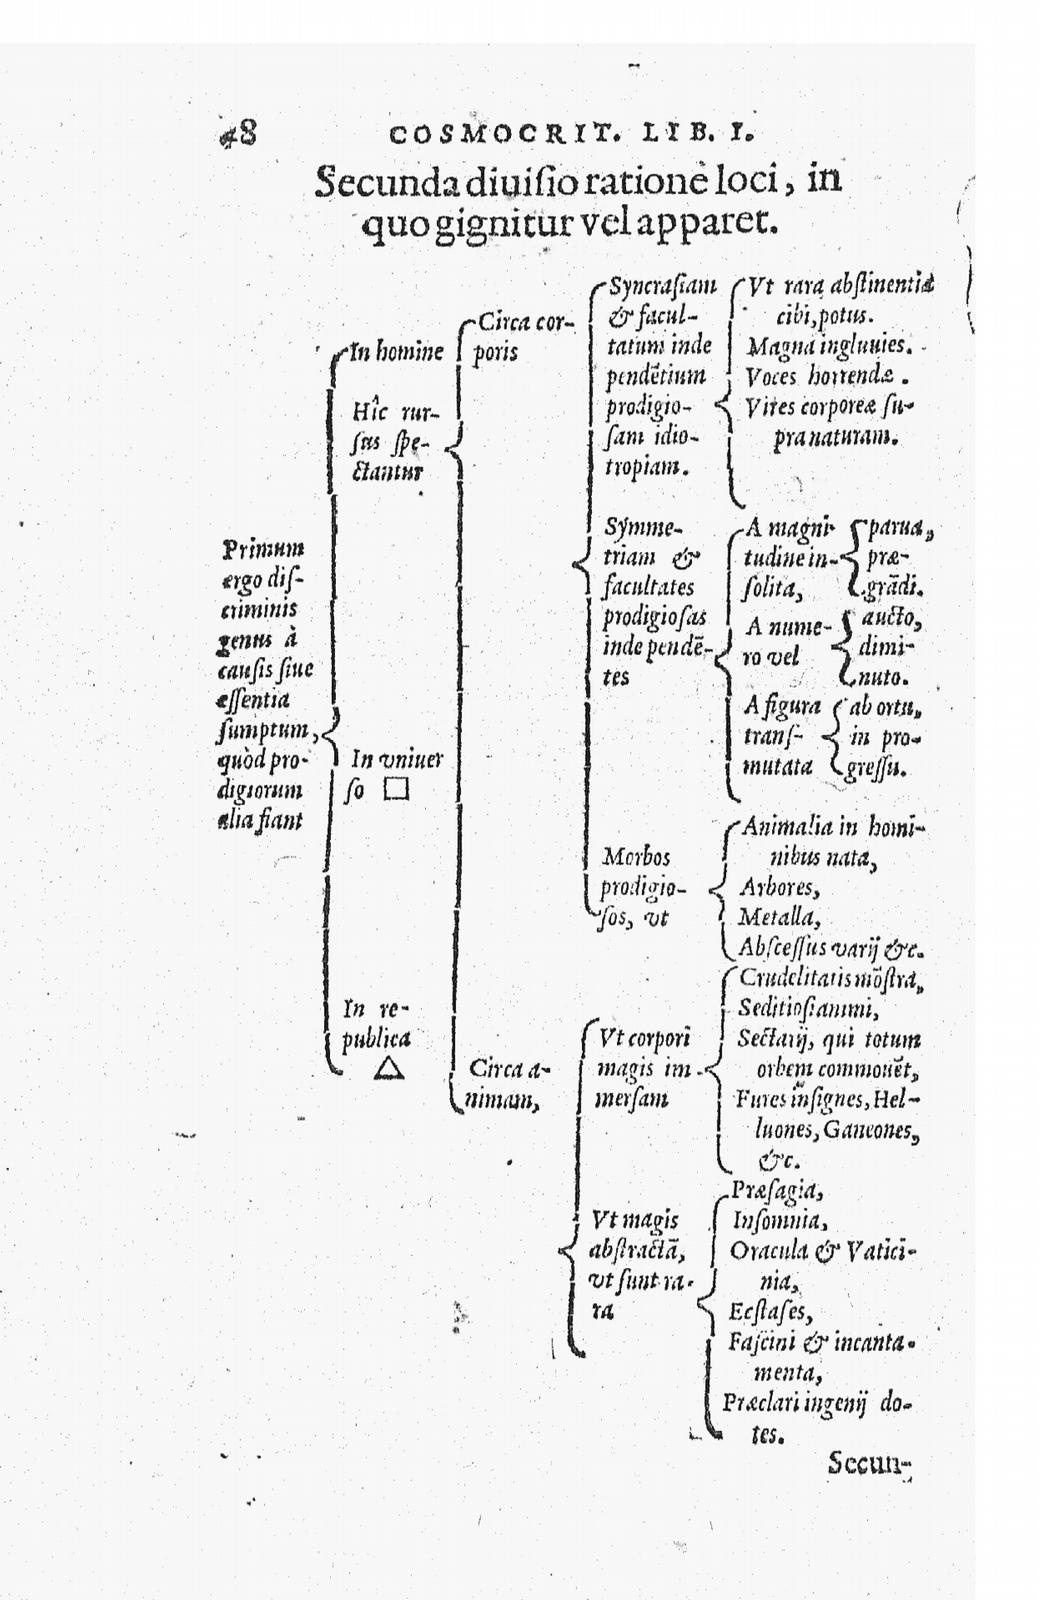 48 COSMOCRIT. LIB. I.
Secunda diuiſio ratione loci, in
quo gignitur vel apparet.
Primum
ergo diſ-
criminis
genus à
cauſis ſiue
eſſentia
ſumptum,
quòd pro-
digiorum
alia fiant
In homine
Hîc rur-
ſus ſpe-
ctantur
In vniuer
ſo □
In re-
publica
△
Circa cor-
poris
Syncraſiam
& facul-
tatum inde
pendẽtium
prodigio-
ſam idio-
tropiam.
Vt rara abſtinentia
cibi, potus.
Magna ingluuies.
Voces horrendæ.
Vires corporeæ ſu-
pra naturam.
Symme-
triam &
facultates
prodigioſas
inde pendẽ-
tes
A magni-
tudine in-
ſolita,
parua,
præ-
grãdi.
A nume-
ro vel
aucto,
dimi-
nuto.
A figura
tranſ-
mutata
ab ortu,
in pro-
greſſu.
Morbos
prodigio-
ſos, vt
Animalia in homi-
nibus nata,
Arbores,
Metalla,
Abſceſſus varij &c.
Circa a-
nimam,
Vt corpori
magis im-
merſam
Crudelitatis mõſtra,
Seditioſiſſimi,
Sectarij, qui totum
orbem commouẽt,
Fures inſignes, Hel-
luones, Ganeones,
&c.
Vt magis
abſtractã,
vt ſunt ra-
ra
Præſagia,
Inſomnia,
Oracula & Vatici-
nia,
Ecſtaſes,
Faſcini & incanta-
menta,
Præclari ingenij do-
tes.
Secun-